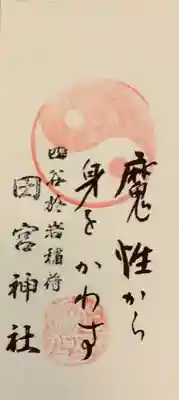 魔性から
身をかわす
四谷於岩稲荷
田宮神社